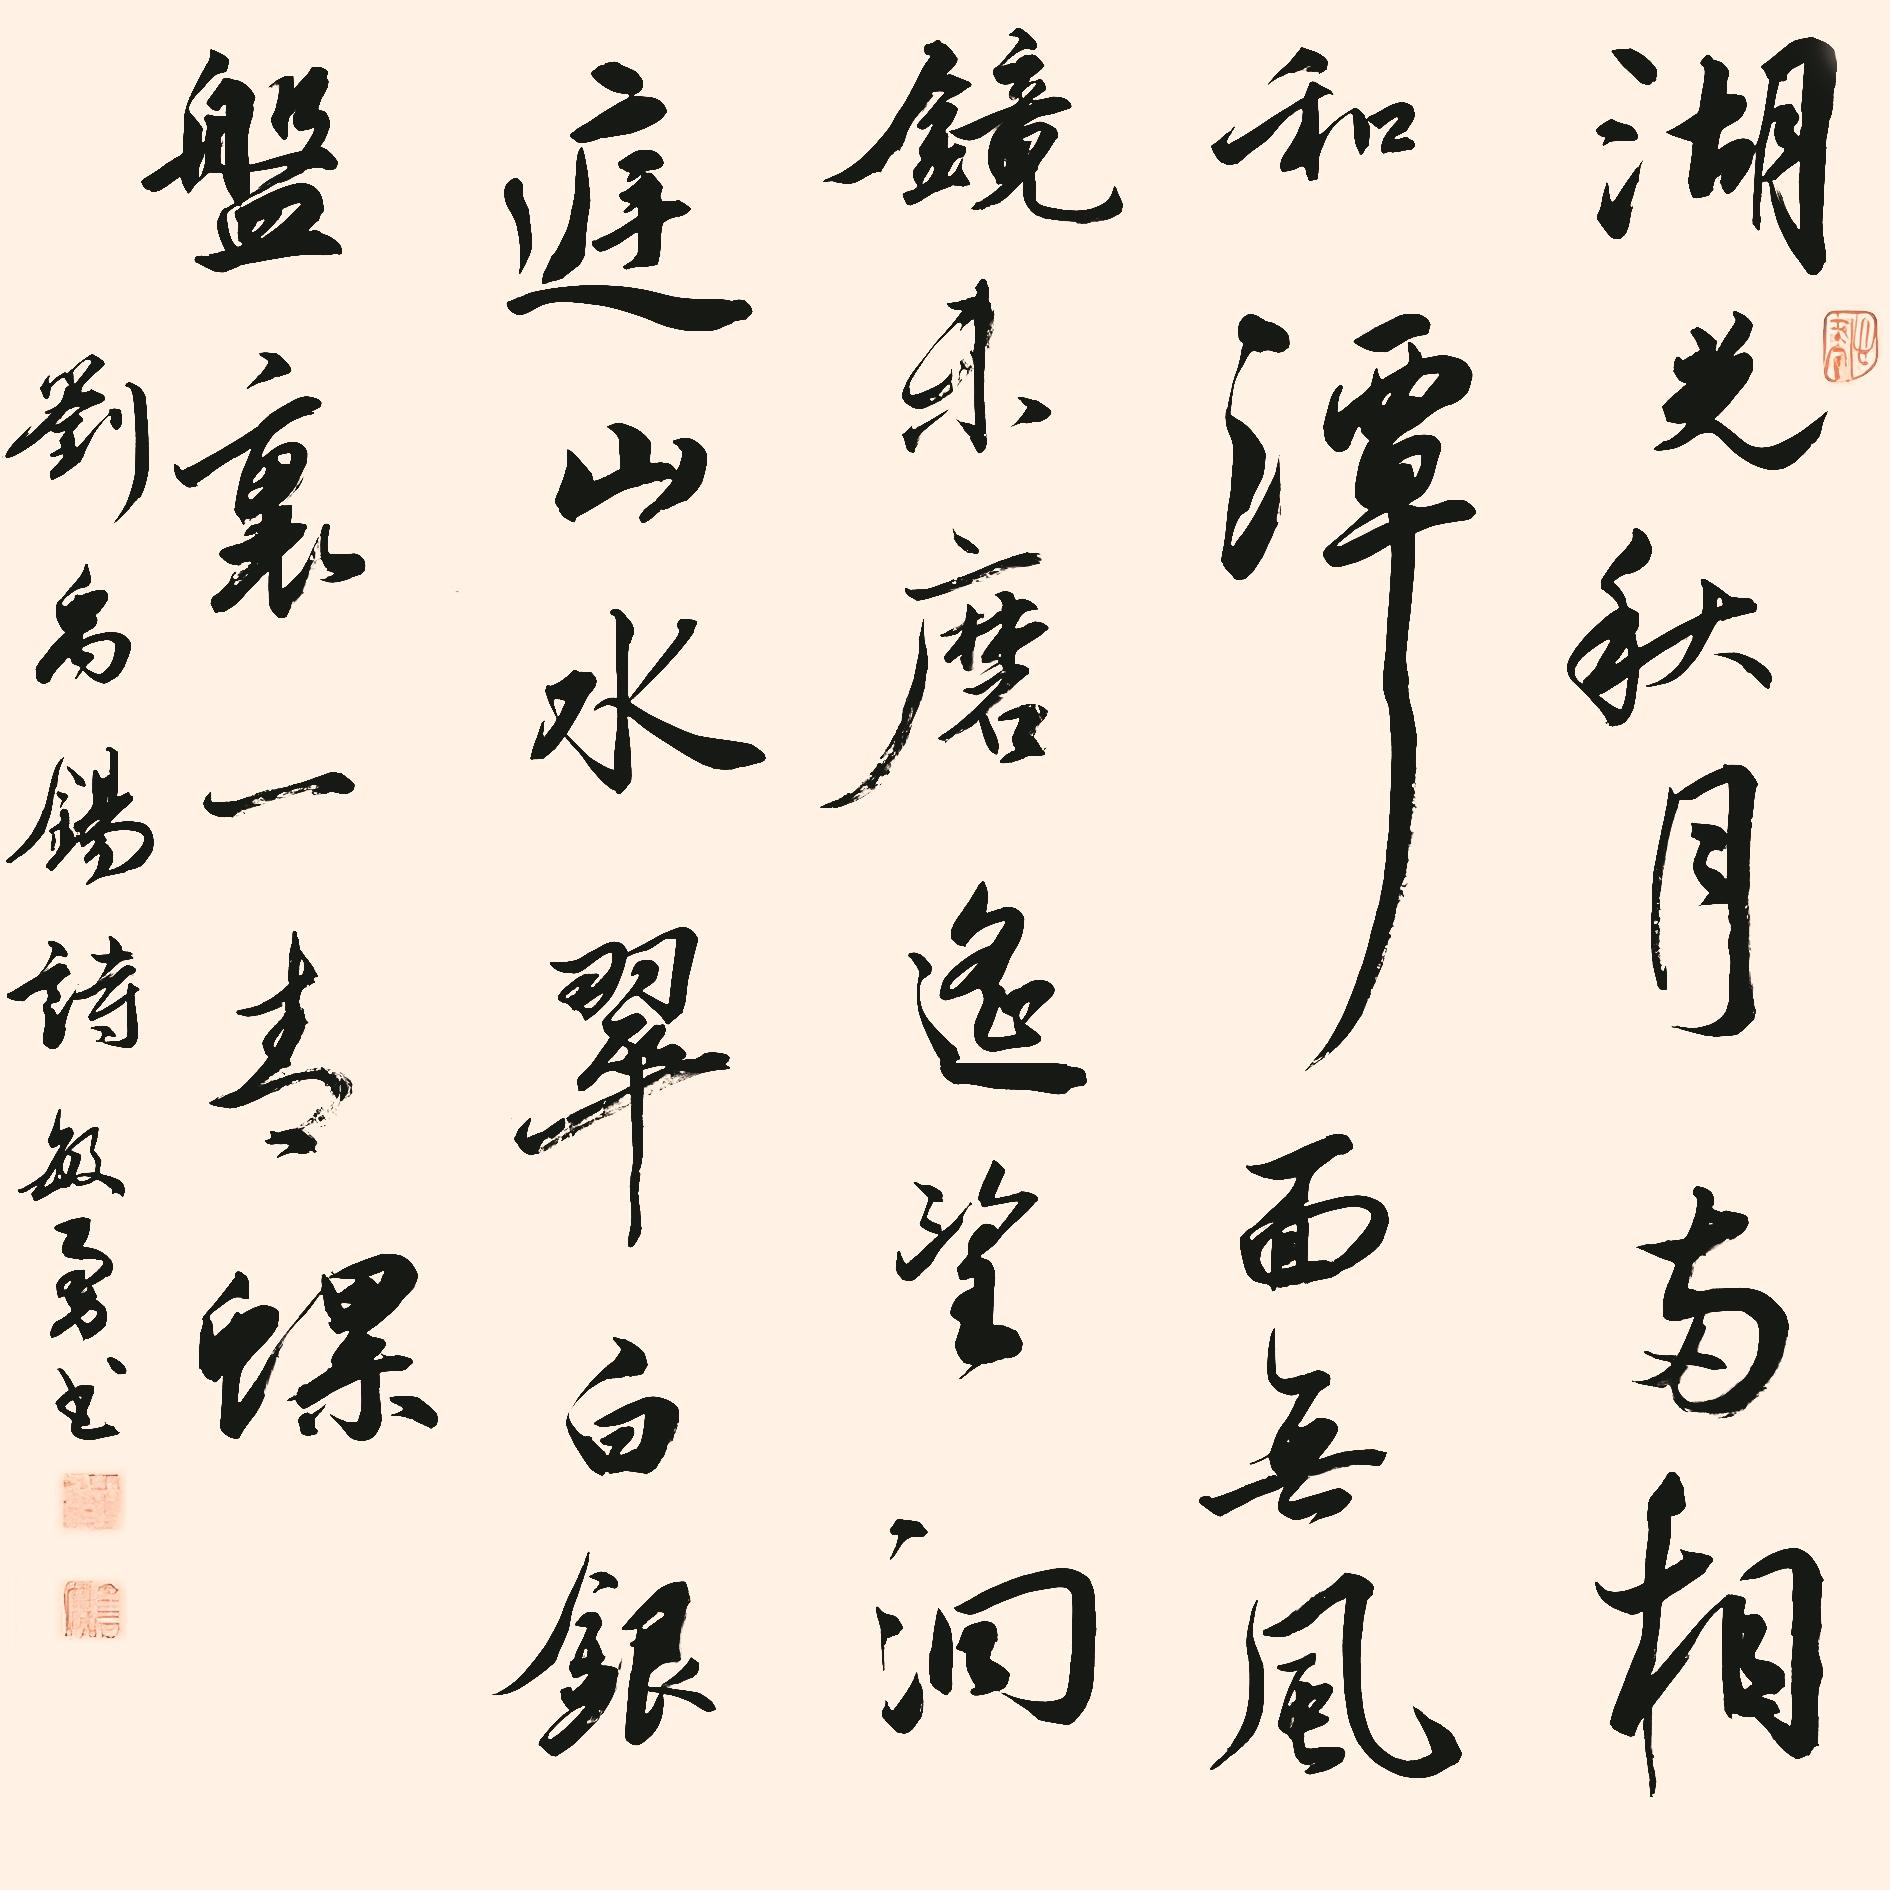 湖光秋月两相
和潭面無風
鏡未磨遥望洞
庭山水翠白銀
盤裏一青螺
劉禹錫詩敏勇书